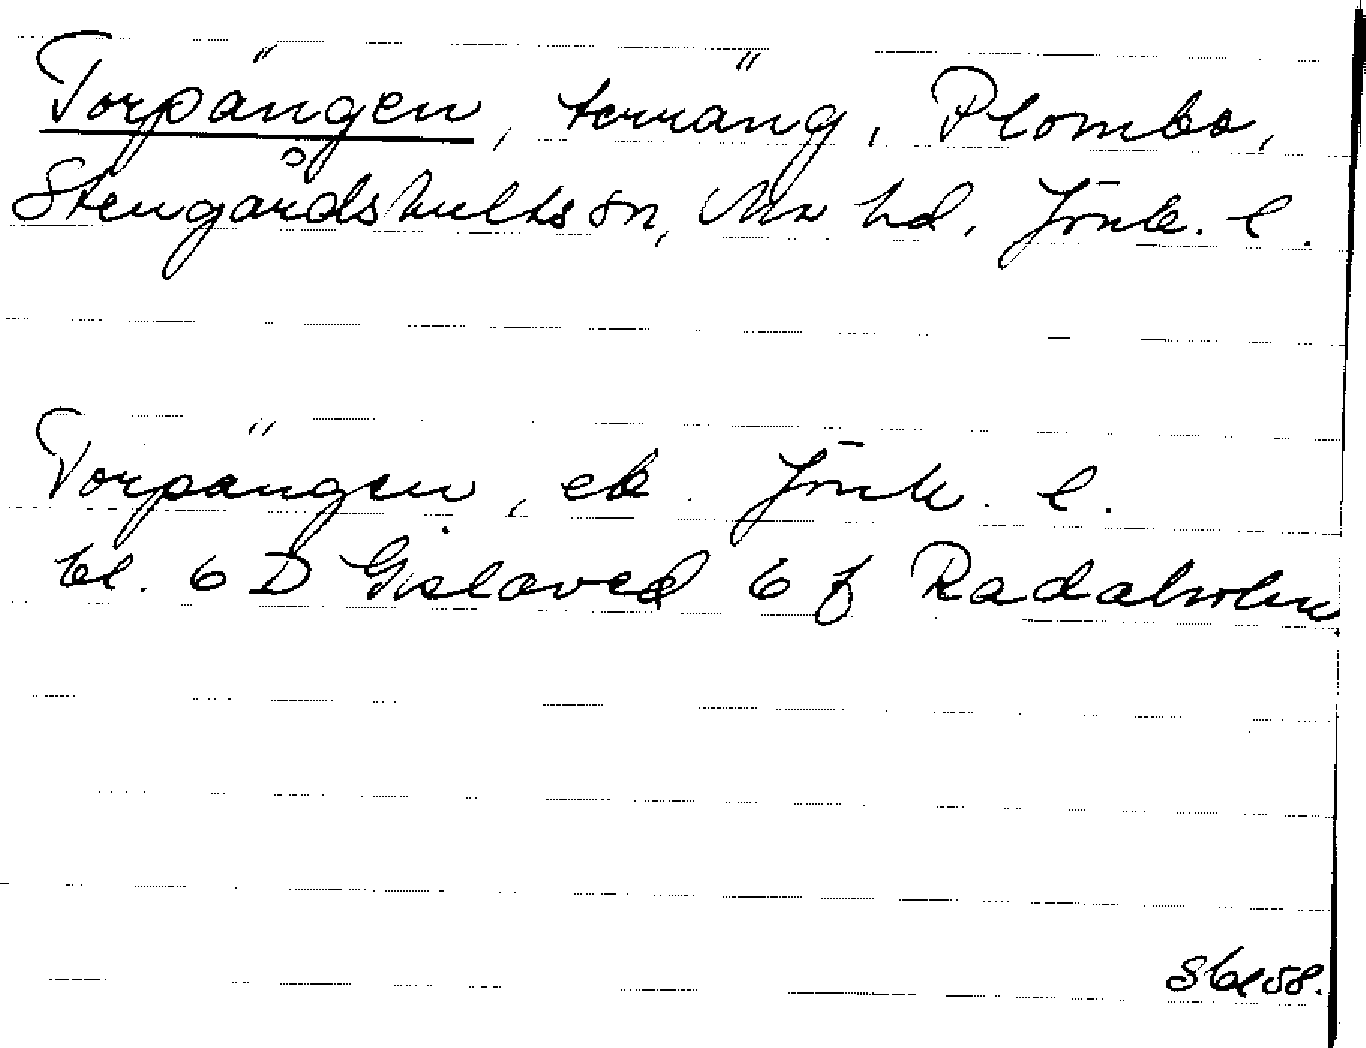 Torpängen, terräng, Plombo,
Stengårdshults sn, Mo hd, Jönk. l.
Torpängen, ek. Jönk. l.
bl. 6 D Gislaved 6 f Radaholm
Sbl 58.